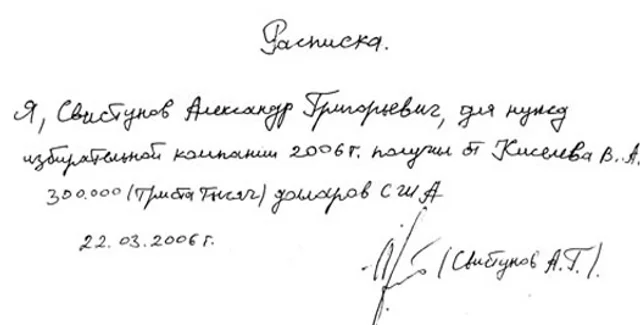 Расписка.
Я, Свистунов Александр Григорьевич, для нужд
избирательной компании 2006г. получил от Киселева В.А.
300.000 (Триста тысяч) долларов США
22.03.2006г.
(Свистунов А.Г.).